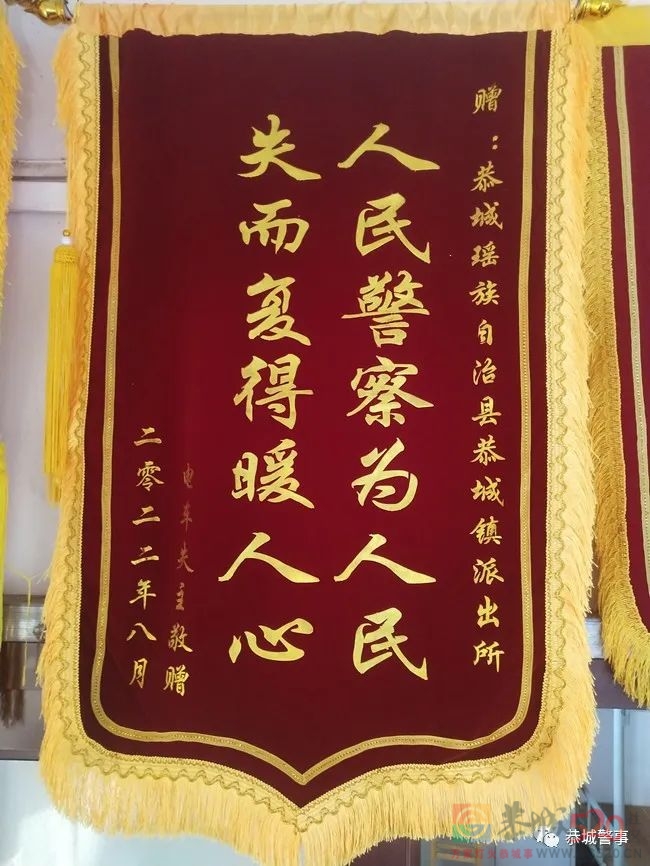 赠：恭城瑶族自治县恭城镇派出所
人民警察为人民
失而复得暖人心
电车失主敬赠
二零二二年八月
恭城警事